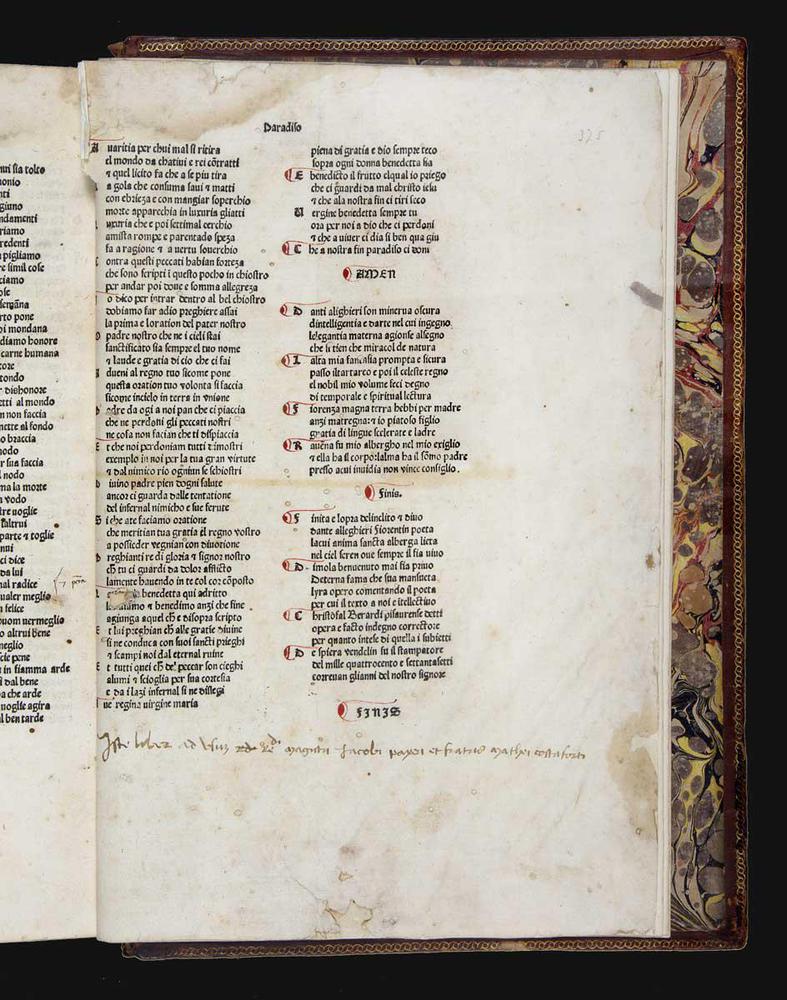 nui sia tolto
onio
nti
giuno
ndamenti
riamo
redenti
i pigliamo
e simil cose
ciamo
ose
sergãna
rto pone
oi mondana
diamo honore
carne humana
core
tondo
r dishonore
etti al mondo
n non faccia
mette al fondo
o braccia
nodo
r sua faccia
l nodo
ma la morte
n vodo
tre uoglie
saltrui
parte ⁊ toglie
nnui
ci dice
da lui
nal radice
ualer meglio
n felice
buom uermeglio
o altrui bene
meglio
scie pene
u in fiamma arde
i dal bene
a che arde
uoglie agira
l ben tarde
Paradiso
375
A uaritia per chui mal si ritira
el mondo da chatiui e rei cõtratti
⁊ quel licito fa che a se piu tira
a gola che consuma saui ⁊ matti
con ebrieza e con mangiar soperchio
morte apparechia in luxuria gliatti
uxuria che e poi settimal cerchio
amista rompe e parentado speza
fa a ragione ⁊ a uertu souerchio
ontra questi peccati habian forteza
che sono scripti i questo pocho in chiostro
per andar poi doue e somma allegreza
o dico per intrar dentro al bel chiostro
dobiamo far adio preghiere assai
la prima e loration del pater nostro
padre nostro che ne i cieli stai
sanctificato sia sempre el tuo nome
⁊ laude e gratia di cio che ci fai
dueni al regno tuo sicome pone
questa oration tuo volonta si faccia
sicome incielo in terra in vnione
adre da ogi a noi pan che ci piaccia
che ne perdoni gli peccati nostri
ne cosa non facian che ti dispiaccia
E t che noi perdoniam tutti timostri
exemplo in noi per la tua gran virtute
⁊ dal nimico rio ogniun se schiostri
iuino padre pien dogni salute
ancor ci guarda dalle tentatione
del infernal nimicho e sue ferute
S i che ate faciamo oratione
che meritian tua gratia el regno vostro
a posseder vegnian con diuotione
reghianti re di gloria ⁊ signor nostro
ch̃ tu ci guardi da dolor afflicto
lamente hauendo in te col cor cõposto
benedetta qui adritto
⁊ benedimo anzi che fine
agiunga aquel ch̃ e disopra scripto
E t lui preghian ch̃ alle gratie diuine
si ne conduca con suoi sancti prieghi
⁊ scampi noi dal eternal ruine
E t tutti quei ch̃ de peccar son cieghi
alumi ⁊ scioglia per sua cortesia
e da i lazi infernal si ne dislegi
ue regina uirgine maria
piena di gratia e dio sempre teco
sopra ogni donna benedetta sia
E benedicto il frutto elqual io priego
che ci guardi da mal christo iesu
⁊ che ala nostra fin ci tiri seco
U ergine benedetta sempre tu
ora per noi a dio che ci perdoni
⁊ che a uiuer ci dia si ben qua giu
C he a nostra fin paradiso ci doni
AMEN
D anti alighieri son minerua oscura
dintelligentia e darte nel cui ingegno
lelegantia materna agionse alsegno
che li tien che miracol de natura
L alta mia fantasia prompta e sicura
passo iltartareo e poi il celeste regno
el nobil mio volume feci degno
di temporale e spiritual lectura
F iorenza magna terra hebbi per madre
anzi matregna: ⁊ io piatoso figlio
gratia di lingue scelerate e ladre
R auena fu mio albergho nel mio exiglio
⁊ ella ha il corpo: lalma ha il sõmo padre
presso acui inuidia non vince consiglio.
Finis.
F inita e lopra delinclito ⁊ diuo
dante alleghieri Fiorentin poeta
lacui anima sancta alberga lieta
nel ciel seren oue sempre il fia uiuo
D imola benuenuto mai fia priuo
Deterna fama che sua mansueta
lyra opero comentando il poeta
per cui il texto a noi e itellectiuo
C hristofal Berardi pisaurense detti
opera e facto indegno correctore
per quanto intese di quella i subietti
D e spiera vendelin fu il stampatore
del mille quattrocento e settantasetti
correuan glianni del nostro signore
FINIS
Iste liber ad Usuz magistri Jacobi et fratris mathei